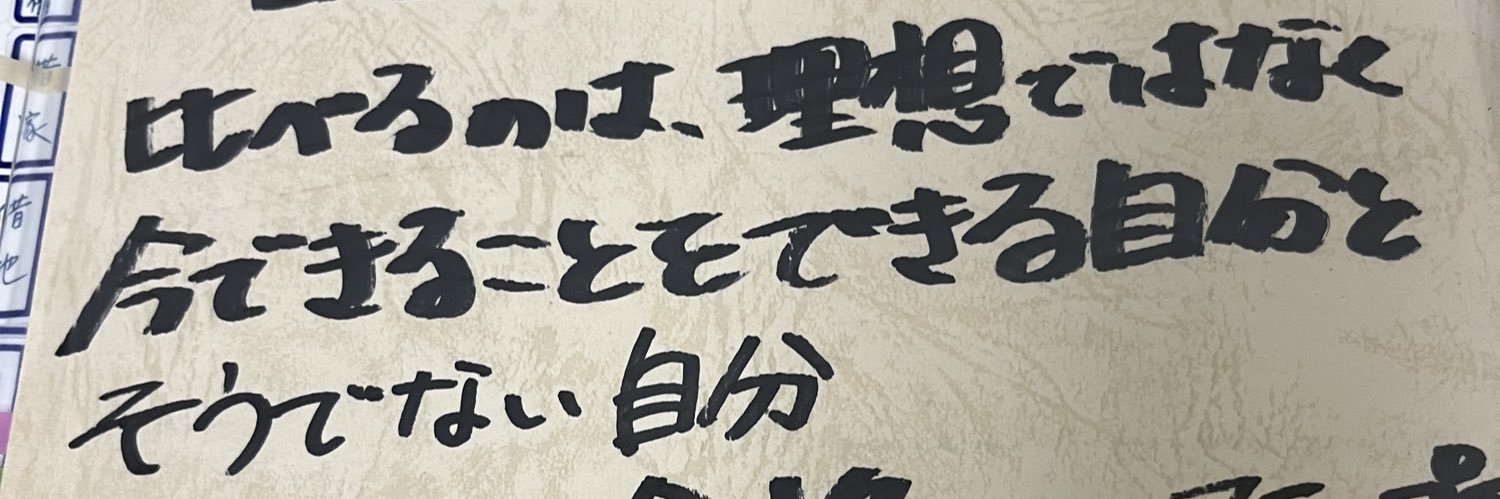 比べるのは、理想ではなく
今できることをできる自分と
そうでない自分